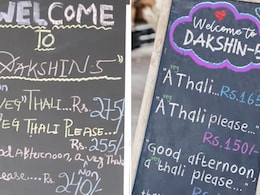 WELCOME
TO
DAKSHIN-5
VEG" THALI... Rs. 275/
VEG THALI PLEASE....
Rs. 255/-
GOOD AFTERNOON, a veg Thali
NON
Rs 240/-
Welcome to
DAKSHIN-5
"A Thali... Rs.165
"A Thali please..."
Rs.150/-
"Good afternoon,
a thali please...
Rs.